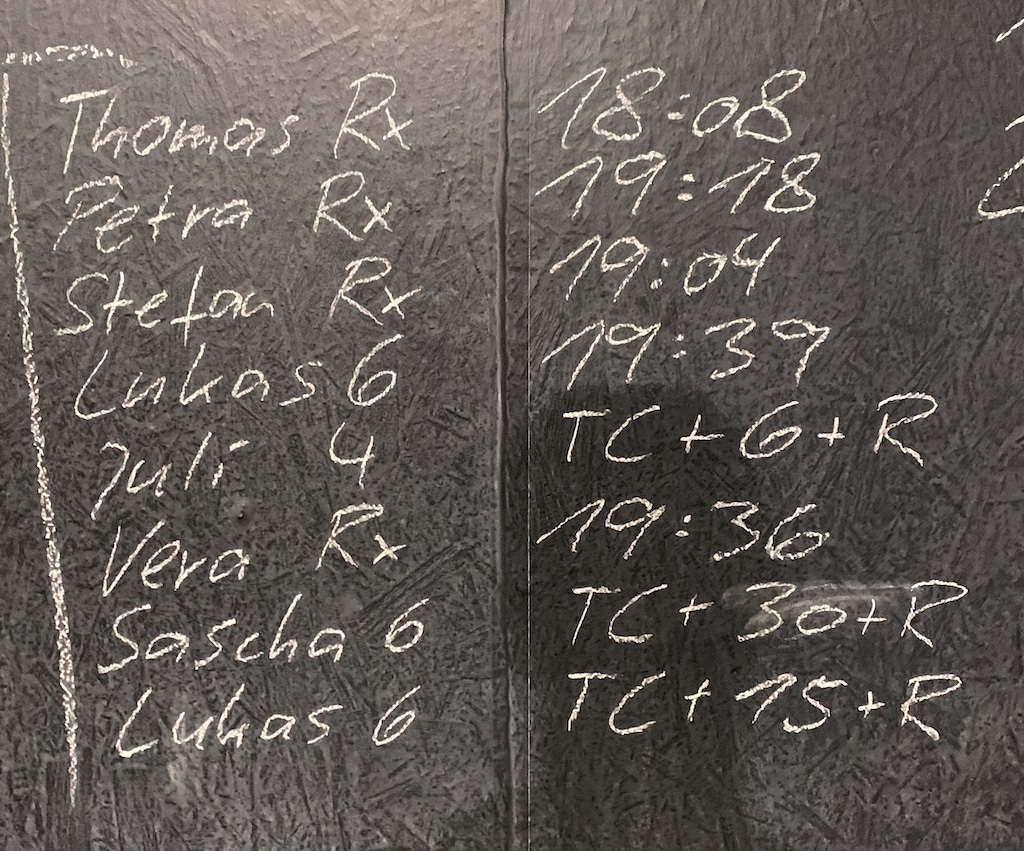 Thomas Rx 18:08
Petra Rx 19:18
Stefan Rx 19:04
Lukas 6 19:39
Juli 4 TC + 6 + R
Vera Rx 19:36
Sascha 6 TC + 30 + R
Lukas 6 TC + 15 + R